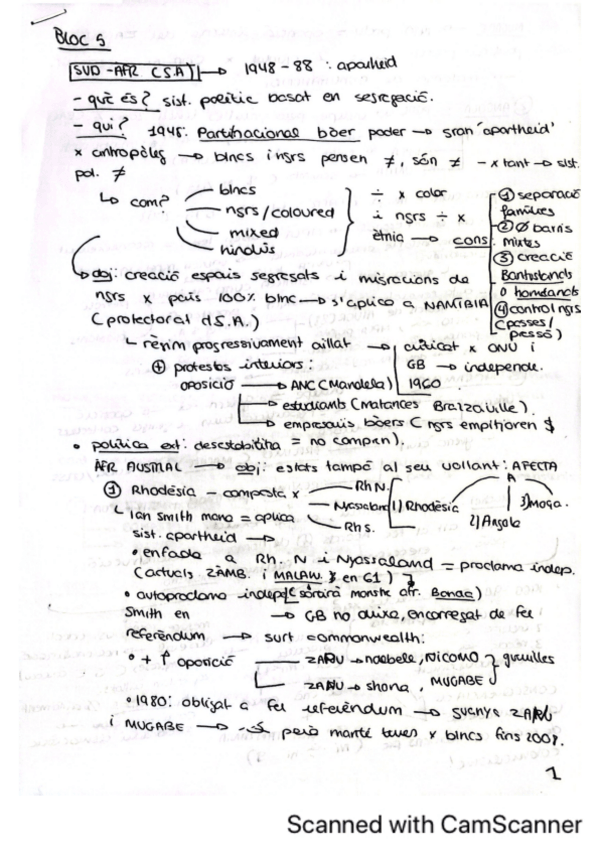 BLOC 5
SUD-AFR (S.A) → 1948-88 : apartheid
- què és? sist. polític basat en segregació.
- qui? 1948: Partit nacional bòer poder → gran 'apartheid'
x antropòlegs → blncs i ngrs pensen ≠, són ≠ - x tant → sist.
pol. ≠
↳ com?
blncs
ngrs/coloured
mixed
hindús
÷ x color
i ngrs ÷ x
ètnia
cons:
① separació
famílies
② Ø barris
mixtes
③ creació
Bantustands
o homelands
④ control ngrs
(passes/
obj: creació espais segregats i migracions de
ngrs x país 100% blnc → s'aplica a NAMIBIA
(protectorat d'S.A.)
↳ règim progressivament aïllat → criticat x ONU i
GB → independe.
1960
⊕ protestes interiors:
oposició → ANC (Mandela)
→ estudiants (matances
→ empresaris bòers (ngrs empitjoren $
• política ext: desestabilitza = no compren).
AFR AUSTRAL → obj: estats tampó al seu voltant: AFECTA A
1) Rhodèsia
2) Angola
3) Moça.
① Rhodèsia - composta x
Rh N.
Nyassaland
Rh S.
↳ Ian Smith mana = aplica
sist. apartheid →
• enfada a Rh. N i Nyassaland = proclama indep.
(actuals ZÀMB. i MALAW.
• autoproclama indep
Smith en → GB no deixa, encarregat de fer
referèndum → surt commonwealth:
• + + oposició
ZAPU → ndebele, NKOMO
ZANU → shona, MUGABE
guerrilles
• 1980: obligat a fer referèndum → guanya ZANU
i MUGABE → però manté terres x blncs fins
1
Scanned with CamScanner